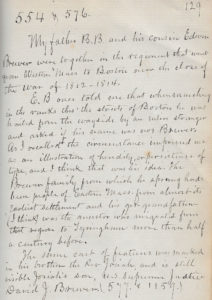 129
554 & 576.
My father B.B and his cousin Edwin
Brewer were together in the regiment that went
from Western Mass to Boston near the close of
the War of 1812-1814.
E.B once told me that when marching
in the ranks thro' the streets of Boston he was
hailed from the wayside by an utter stranger
and asked if his name was not Brewer.
As I recollect the circumstance impressed me
as an illustration of heredity, or persistence of
type and I think that was his idea. The
Brewer family from which he sprang had
been people of Eastern Mass from almost its
earliest settlement and his gt grandfather
I think was the ancestor who migrated from
that region to Tyringham more than half
a century before.
The same cast of features was marked
in his brother the Rev Josiah and is still
visible Josiah's son, U.S Supreme Justice
David J Brewer (577. & 1157.)